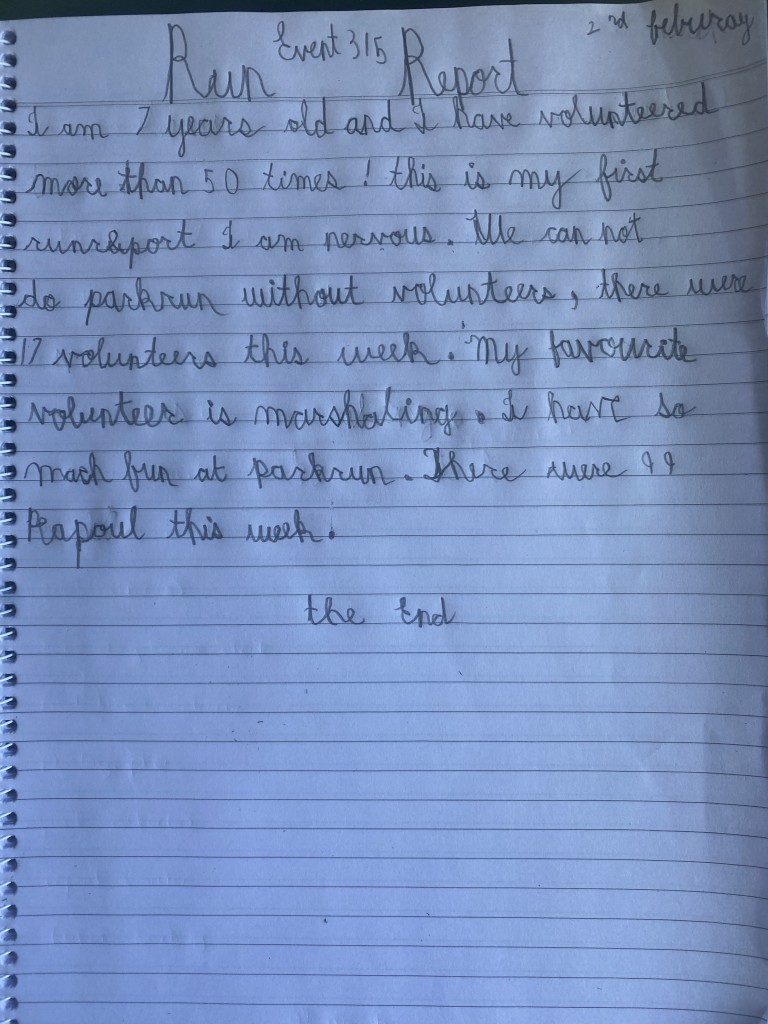 2nd feburay
Event 315
Run Report
I am 7 years old and I have volunteered
more than 50 times! this is my first
runreport I am nervous. We can not
do parkrun without volunteers, there were
17 volunteers this week. My favourite
volunteer is marshaling. I have so
mach fun at parkrun. There were 99
Peapoul this week.
the End